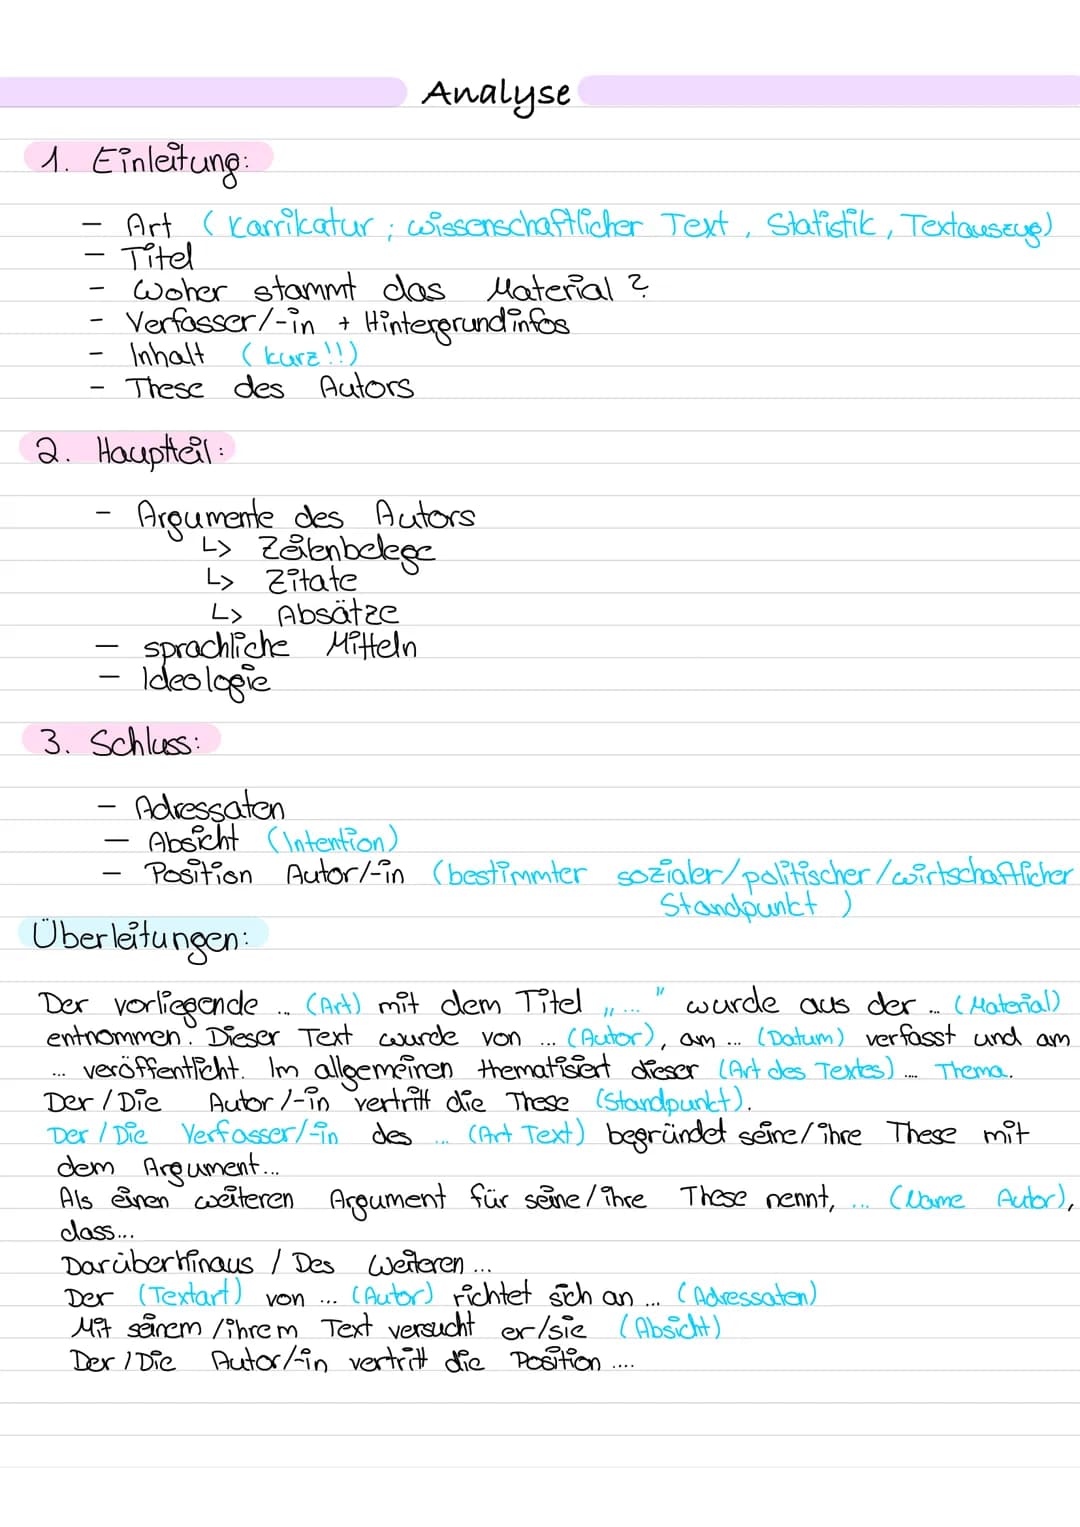 Analyse
1. Einleitung:
- Art (Karrikatur; wissenschaftlicher Text, Statistik, Textauszug)
- Titel
- Woher stammt das Material?
- Verfasser/-in + Hintergrundinfos
- Inhalt (kurz!!)
- These des Autors
2. Hauptteil:
- Argumente des Autors
↳ Zeilenbelege
↳ Zitate
↳ Absätze
- sprachliche Mitteln
- Ideologie
3. Schluss:
- Adressaten
- Absicht (Intention)
- Position Autor/-in (bestimmter sozialer/politischer/wirtschaftlicher
Standpunkt)
Überleitungen:
Der vorliegende ... (Art) mit dem Titel „..." wurde aus der ... (Material)
entnommen. Dieser Text wurde von ... (Autor), am ... (Datum) verfasst und am
... veröffentlicht. Im allgemeinen thematisiert dieser (Art des Textes) .... Thema.
Der / Die Autor/-in vertritt die These (Standpunkt).
Der / Die Verfasser/-in des ... (Art Text) begründet seine/ihre These mit
dem Argument...
Als einen weiteren Argument für seine/ihre These nennt, ... (Name Autor),
dass...
Darüberhinaus / Des Weiteren ...
Der (Textart) von ... (Autor) richtet sich an ... (Adressaten)
Mit seinem/ihrem Text versucht er/sie (Absicht)
Der / Die Autor/-in vertritt die Position ....